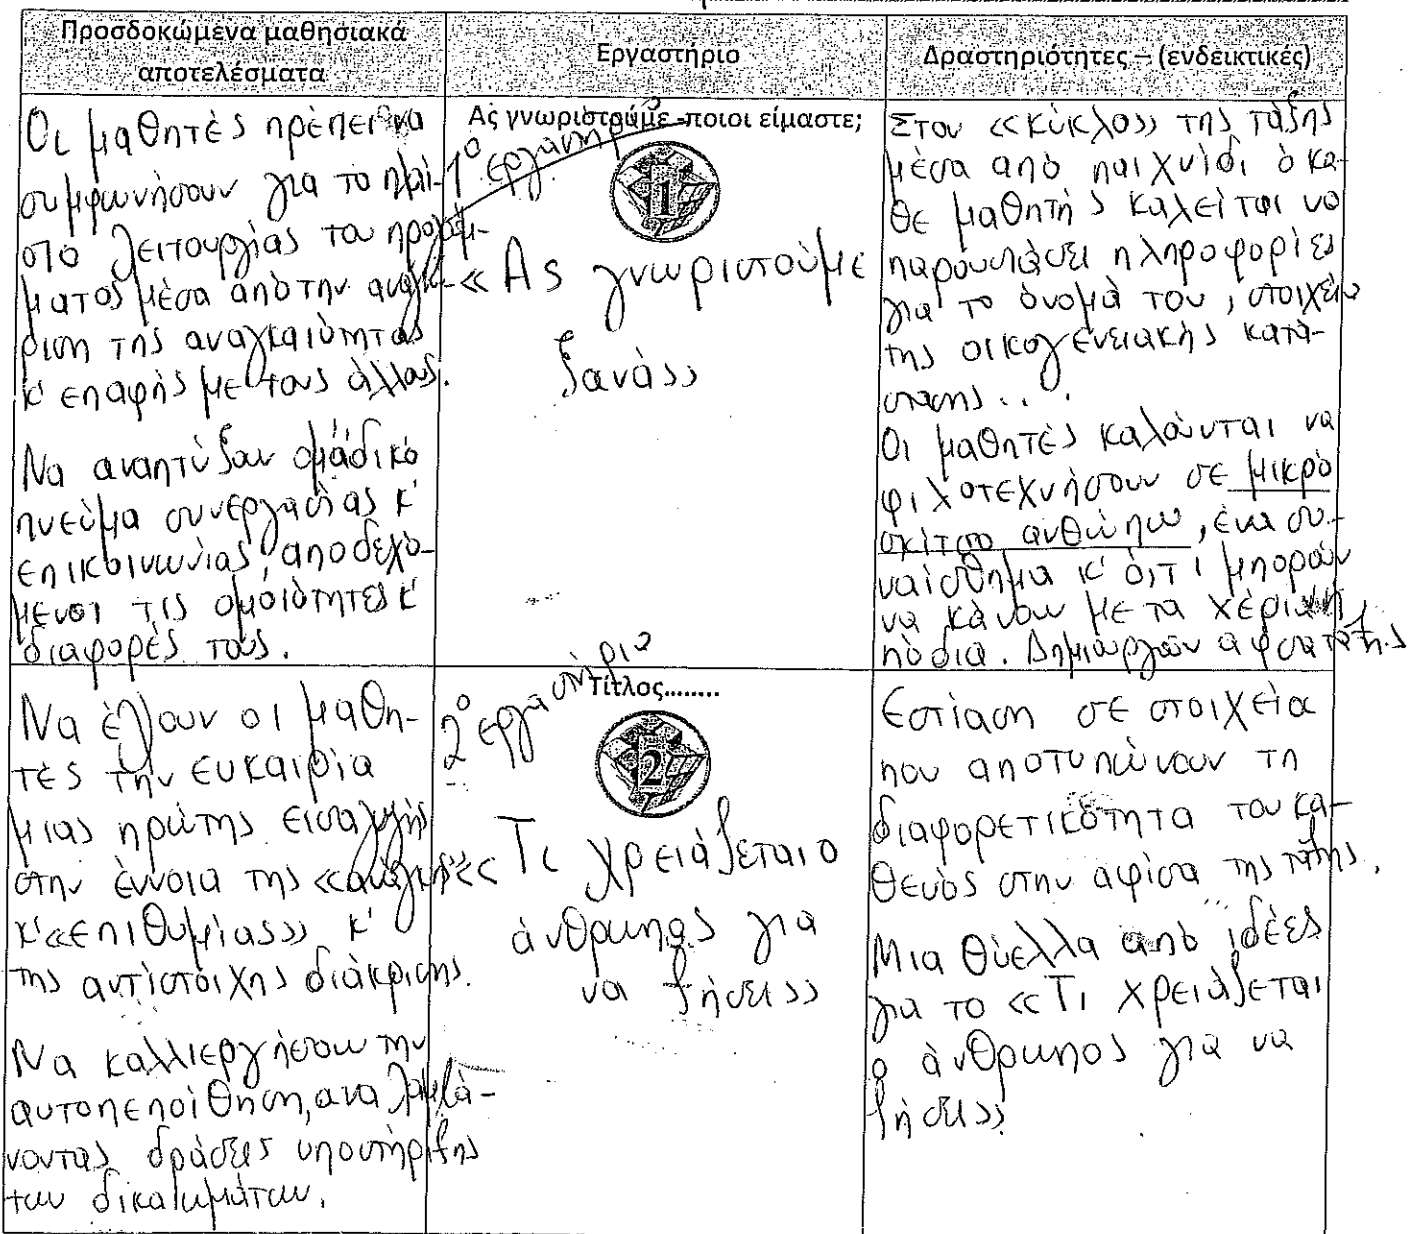 Προσδοκώμενα μαθησιακά
αποτελέσματα
Εργαστήριο
Δραστηριότητες – (ενδεικτικές)
Οι μαθητές πρέπει να
συμφωνήσουν για το πλαί-
σιο λειτουργίας του προγράμ-
ματος μέσα από την αναγνώ-
ριση της αναγκαιότητας
κ' επαφής με τους άλλους.
Να αναπτύξουν ομαδικό
πνεύμα συνεργασίας κ'
επικοινωνίας, αποδεχό-
μενοι τις ομοιότητες κ'
διαφορές τους.
Ας γνωριστούμε -ποιοι είμαστε;
1ο εργαστήριο
1
«Ας γνωριστούμε
ξανά»
Στον «κύκλο» της τάξης
μέσα από παιχνίδι ο κά-
θε μαθητής καλείται να
παρουσιάσει πληροφορίες
για το όνομά του, στοιχεία
της οικογενειακής κατά-
στασης...
Οι μαθητές καλούνται να
φιλοτεχνήσουν σε μικρό
σκίτσο ανθρώπου, ένα συ-
ναίσθημα κ' ό,τι μπορούν
να κάνουν με τα χέρια ή
πόδια. Δημιουργούν αφίσα τάξης
Να έχουν οι μαθη-
τές την ευκαιρία
μιας πρώτης εισαγωγής
στην έννοια της «ανάγκης»
κ' «επιθυμίας» κ'
της αντίστοιχης διάκρισης.
Να καλλιεργήσουν την
αυτοπεποίθηση, αναλαμβά-
νοντας δράσεις υποστήριξης
των δικαιωμάτων.
Τίτλος........
2ο εργαστήριο
2
«Τι χρειάζεται ο
άνθρωπος για
να ζήσει»
Εστίαση σε στοιχεία
που αποτυπώνουν τη
διαφορετικότητα του κα-
θενός στην αφίσα της τάξης.
Μια θύελλα από ιδέες
για το «Τι χρειάζεται
ο άνθρωπος για να
ζήσει»